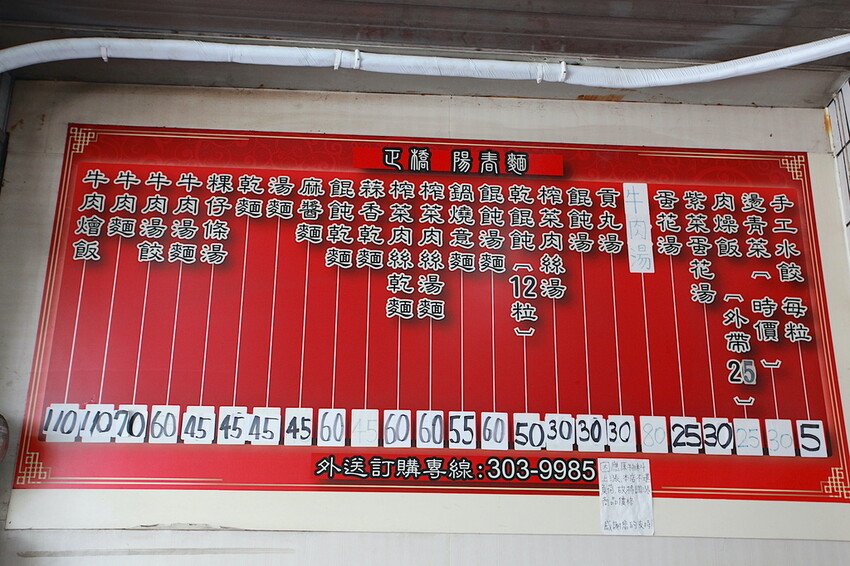 正橋 陽春麵
手工水餃 每粒
燙青菜（時價）
肉燥飯（外帶25）
紫菜蛋花湯
蛋花湯
牛肉湯
貢丸湯
餛飩湯
榨菜肉絲湯
乾餛飩（12粒）
餛飩湯麵
鍋燒意麵
榨菜肉絲湯麵
榨菜肉絲乾麵
蒜香乾麵
餛飩乾麵
麻醬麵
湯麵
乾麵
粿仔條湯
牛肉湯麵
牛肉湯餃
牛肉麵
牛肉燴飯
110 110 70 60 45 45 45 45 60 45 60 60 55 60 50 30 30 30 80 25 30 25 30 5
外送訂購專線:303-9985
因應原物料
上漲,本店不堪
負荷,故將調整
商品價格
感謝您的支持